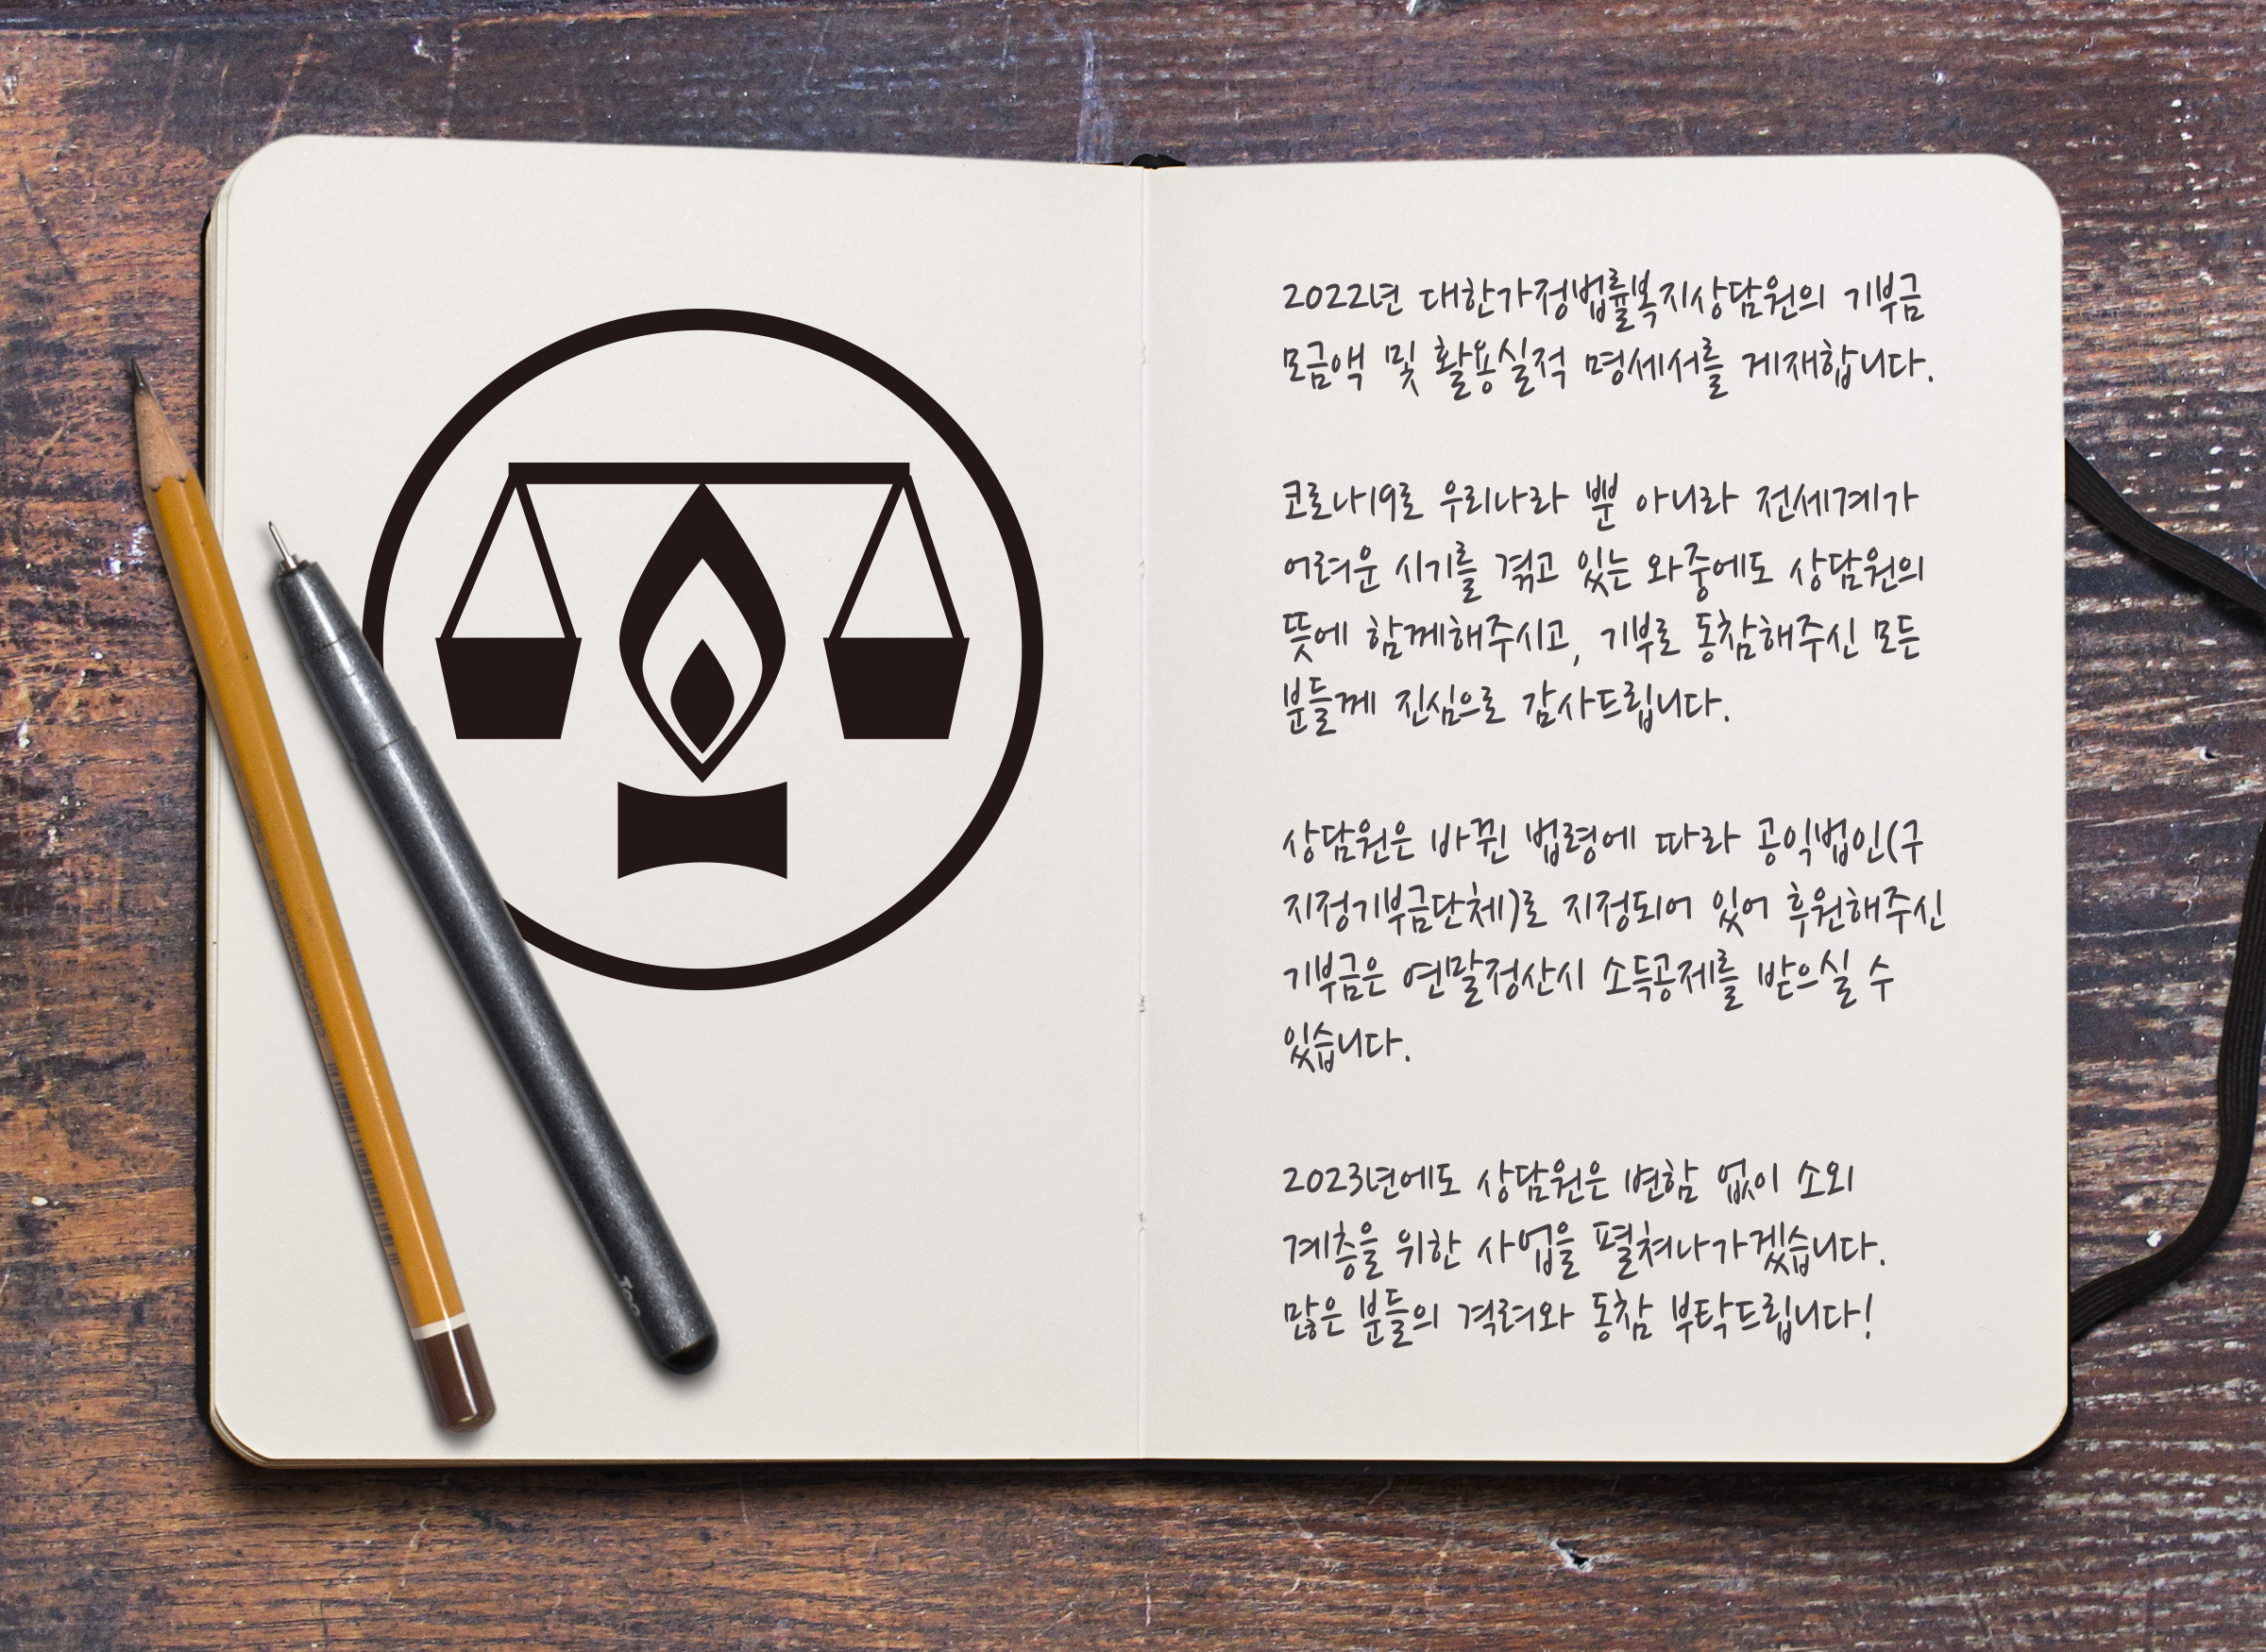 2022년 대한가정법률복지상담원의 기부금
모금액 및 활용실적 명세서를 게재합니다.
코로나19로 우리나라 뿐 아니라 전세계가
어려운 시기를 겪고 있는 와중에도 상담원의
뜻에 함께해주시고, 기부로 동참해주신 모든
분들께 진심으로 감사드립니다.
상담원은 바뀐 법령에 따라 공익법인(구
지정기부금단체)로 지정되어 있어 후원해주신
기부금은 연말정산시 소득공제를 받으실 수
있습니다.
2023년에도 상담원은 변함 없이 소외
계층을 위한 사업을 펼쳐나가겠습니다.
많은 분들의 격려와 동참 부탁드립니다!
Too